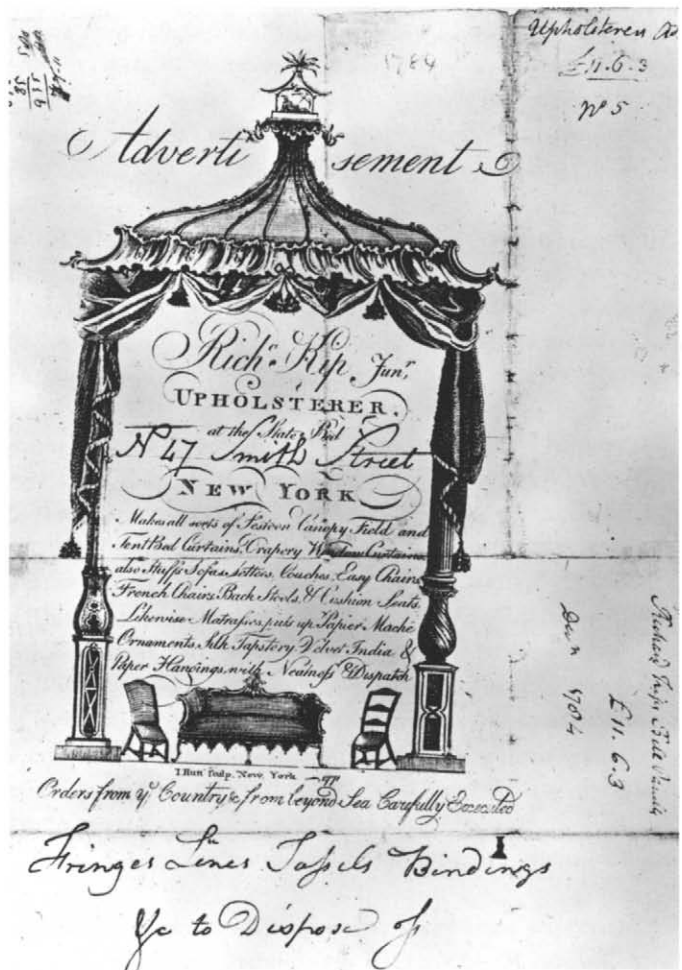 Upholsterers
£11.6.3
No 5
1784
Advertisement
Richd. Kip Junr.
UPHOLSTERER.
at the State Bed
No 47 Smith Street
NEW YORK
Makes all sorts of Festoon Canopy Field and
Tent Bed Curtains, Drapery Window Curtains
also Stuffs Sofas, Settees, Couches, Easy Chairs
French Chairs, Back Stools, & Cushion Seats.
Likewise Matrasses, puts up Papier Maché
Ornaments, Silk Tapstery, Velvet, India &
Paper Hangings, with Neatness & Dispatch
I. Hutt Sculp. New York
Orders from ye Country & from beyond Sea Carefully Executed
Fringes Lines Tassels Bindings
&c to Dispose of
Richard Kip Bill
£11.6.3
1784